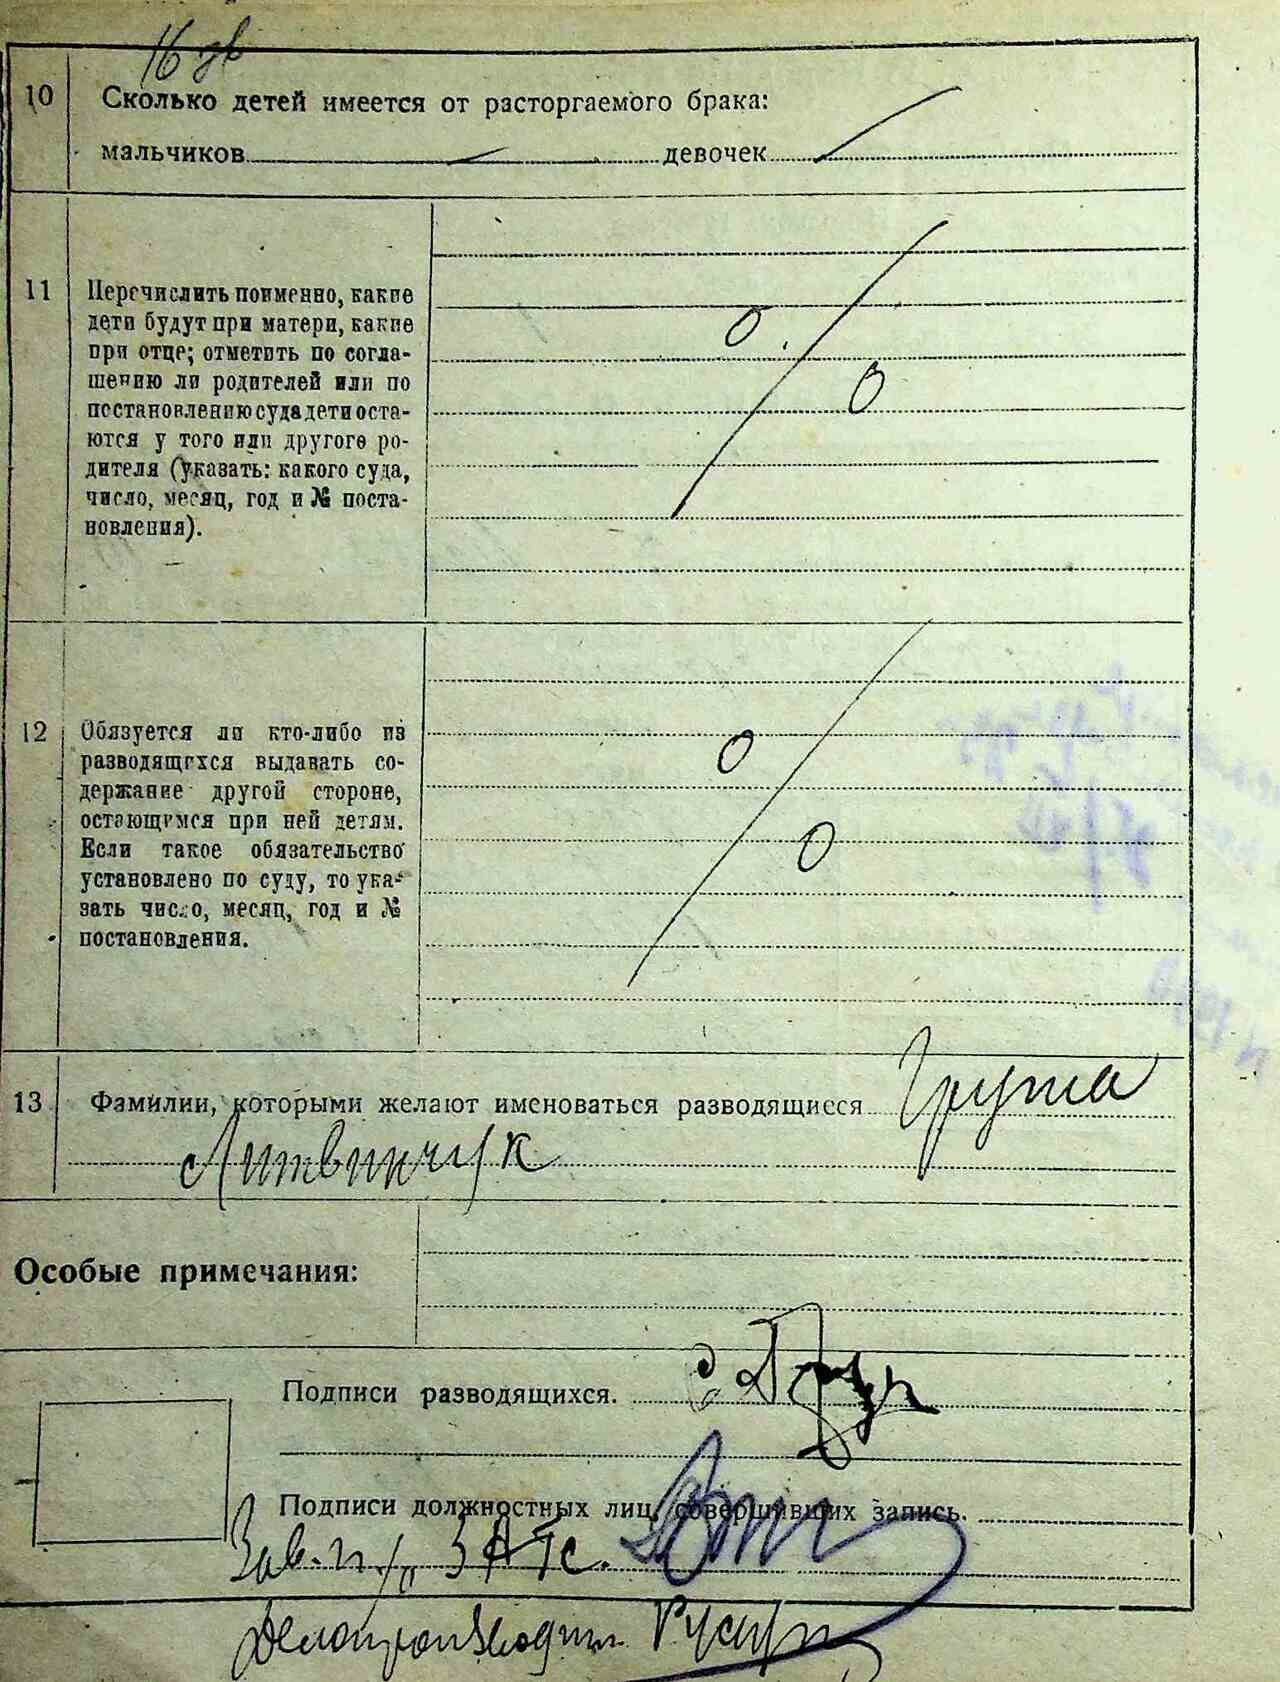 16
10 Сколько детей имеется от расторгаемого брака:
мальчиков — девочек
11 Перечислить поименно, какие
дети будут при матери, какие
при отце; отметить по согла-
шению ли родителей или по
постановлению суда дети оста-
ются у того или другого ро-
дителя (указать: какого суда,
число, месяц, год и № поста-
новления).
12 Обязуется ли кто-либо из
разводящихся выдавать со-
держание другой стороне,
остающимся при ней детям.
Если такое обязательство
установлено по суду, то ука-
зать число, месяц, год и №
постановления.
13 Фамилии, которыми желают именоваться разводящиеся Груша
Литвинчук
Особые примечания:
Подписи разводящихся.
Подписи должностных лиц, совершивших запись.
Зав. ЗАГС.
Делопроизводит.